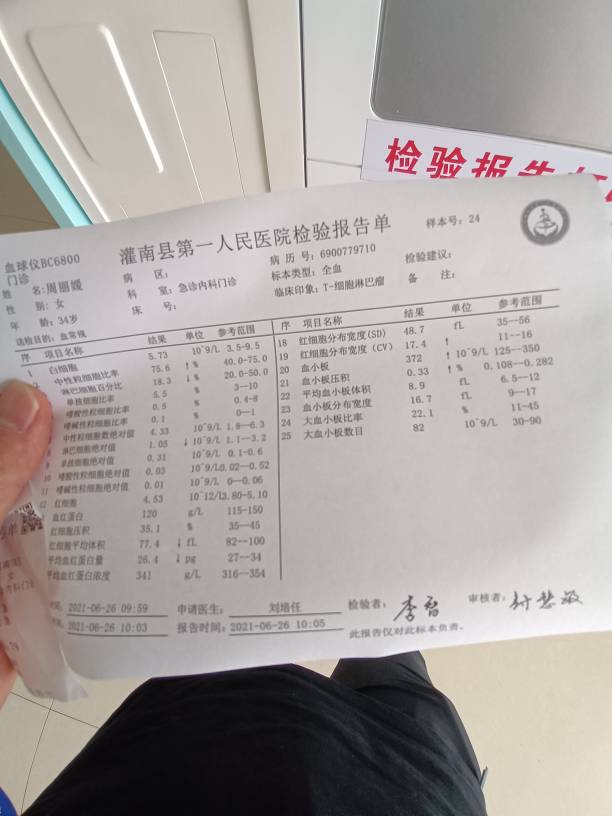 检验报告
血球仪BC6800
灌南县第一人民医院检验报告单
样本号: 24
门诊
病 区:
病 历 号: 6900779710
检验建议:
姓 名: 周丽媛
科 室: 急诊内科门诊
标本类型: 全血
备 注:
性 别: 女
床 号:
临床印象: T-细胞淋巴瘤
年 龄: 34岁
送检目的: 血常规
序 项目名称 结果 单位 参考范围
1 白细胞 5.73 10^9/L 3.5-9.5
中性粒细胞比率 75.6 ↑ % 40.0-75.0
淋巴细胞百分比 18.3 ↓ % 20.0-50.0
单核细胞比率 5.5 % 3—10
嗜酸性粒细胞比率 0.5 % 0.4-8
嗜碱性粒细胞比率 0.1 % 0—1
中性粒细胞数绝对值 4.33 10^9/L 1.8—6.3
8 淋巴细胞绝对值 1.05 ↓ 10^9/L 1.1—3.2
9 单核细胞绝对值 0.31 10^9/L 0.1-0.6
10 嗜酸性粒细胞绝对值 0.03 10^9/L 0.02—0.52
11 嗜碱性粒细胞绝对值 0.01 10^9/L 0—0.06
12 红细胞 4.53 10^12/L 3.80-5.10
血红蛋白 120 g/L 115-150
红细胞压积 35.1 % 35—45
红细胞平均体积 77.4 ↓ fL 82—100
平均血红蛋白量 26.4 ↓ pg 27—34
平均血红蛋白浓度 341 g/L 316—354
序 项目名称 结果 单位 参考范围
18 红细胞分布宽度(SD) 48.7 fL 35—56
19 红细胞分布宽度 (CV) 17.4 ↑ 11—16
20 血小板 372 ↑ 10^9/L 125—350
21 血小板压积 0.33 ↑ % 0.108—0.282
22 平均血小板体积 8.9 fL 6.5—12
23 血小板分布宽度 16.7 fL 9—17
24 大血小板比率 22.1 % 11-45
25 大血小板数目 82 10^9/L 30-90
2021-06-26 09:59
申请医生: 刘培任
检验者: 李智
审核者:
2021-06-26 10:03
报告时间: 2021-06-26 10:05
此报告仅对此标本负责.